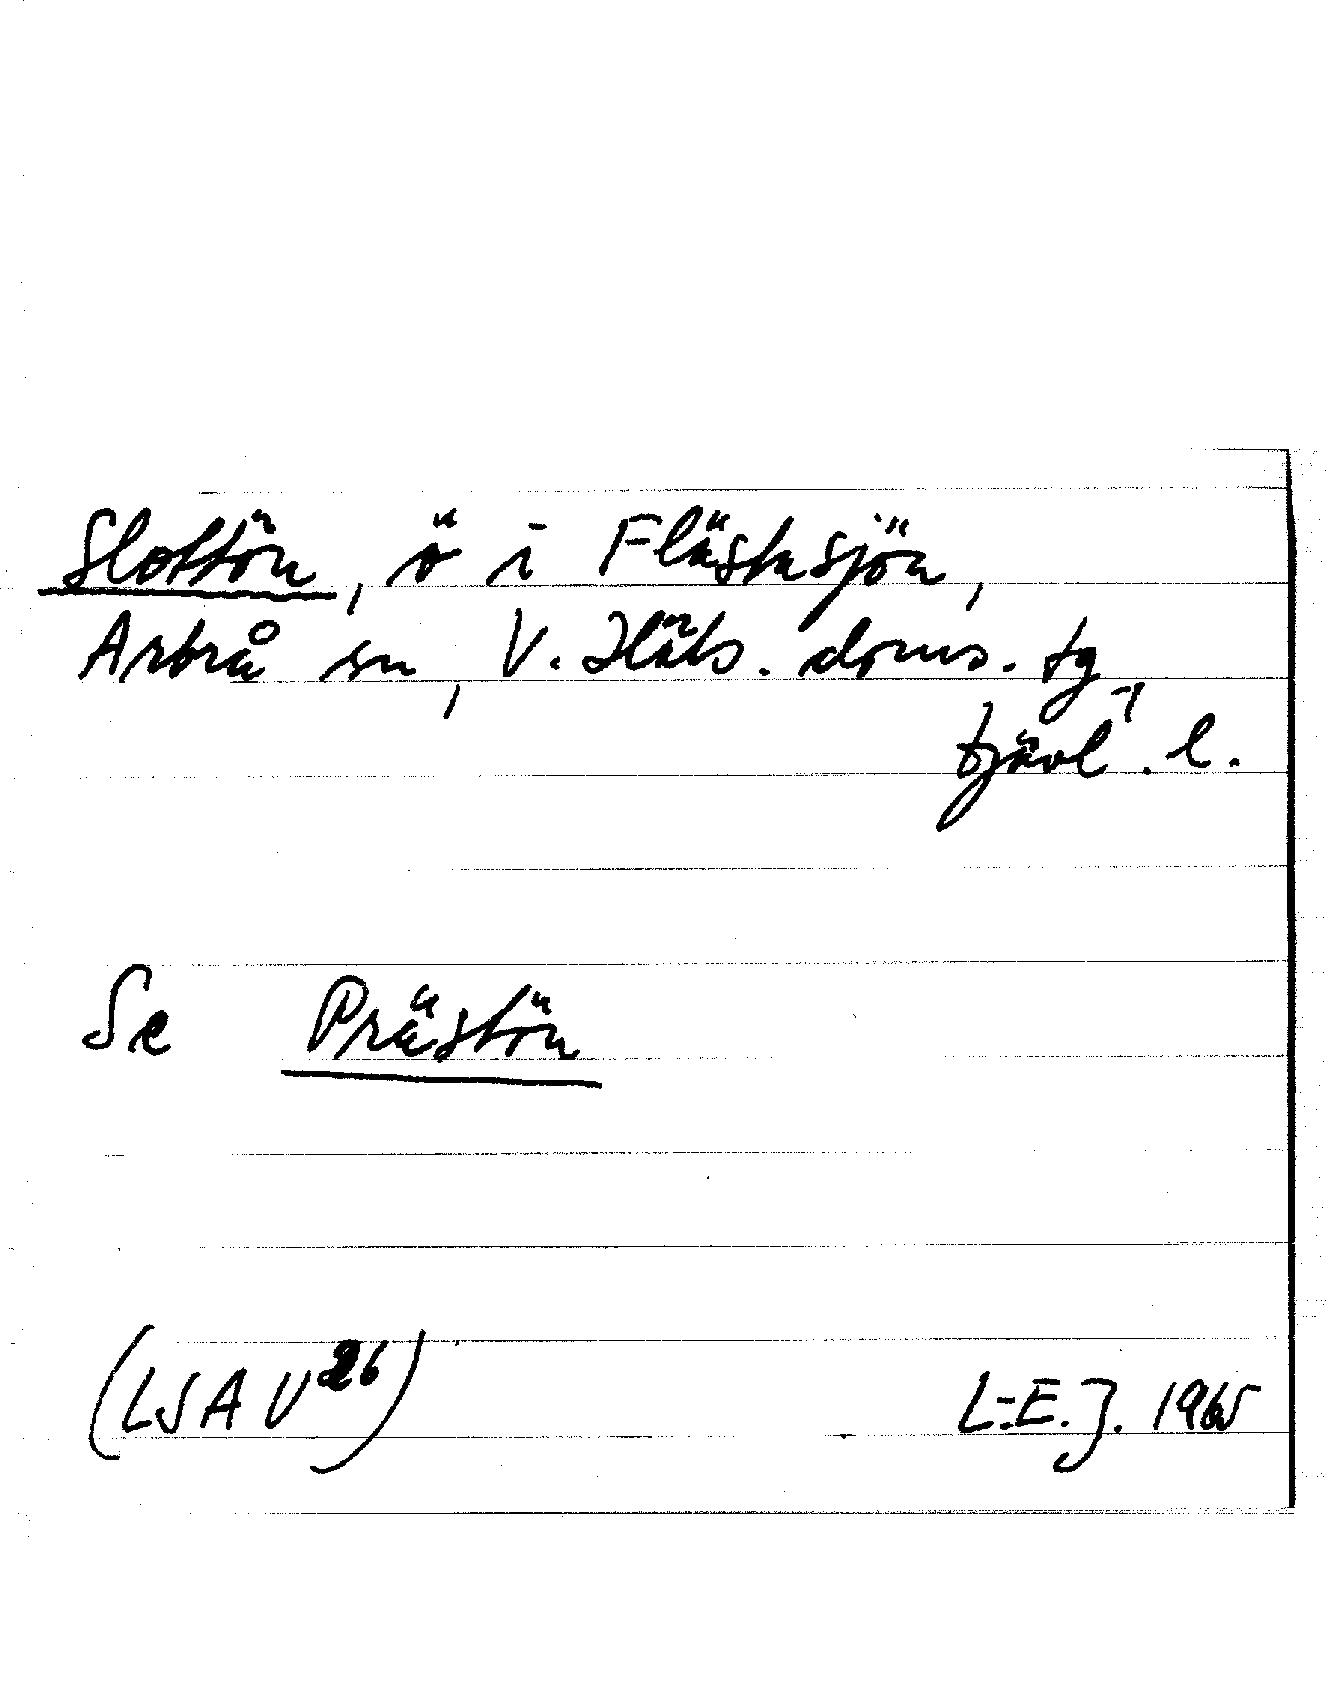 Slottön, ö i Flästasjön,
Arbrå sn, V. Häls. doms. tg
Gävl. l.
Se Prästön
(LSA U 26) L-E. J. 1965